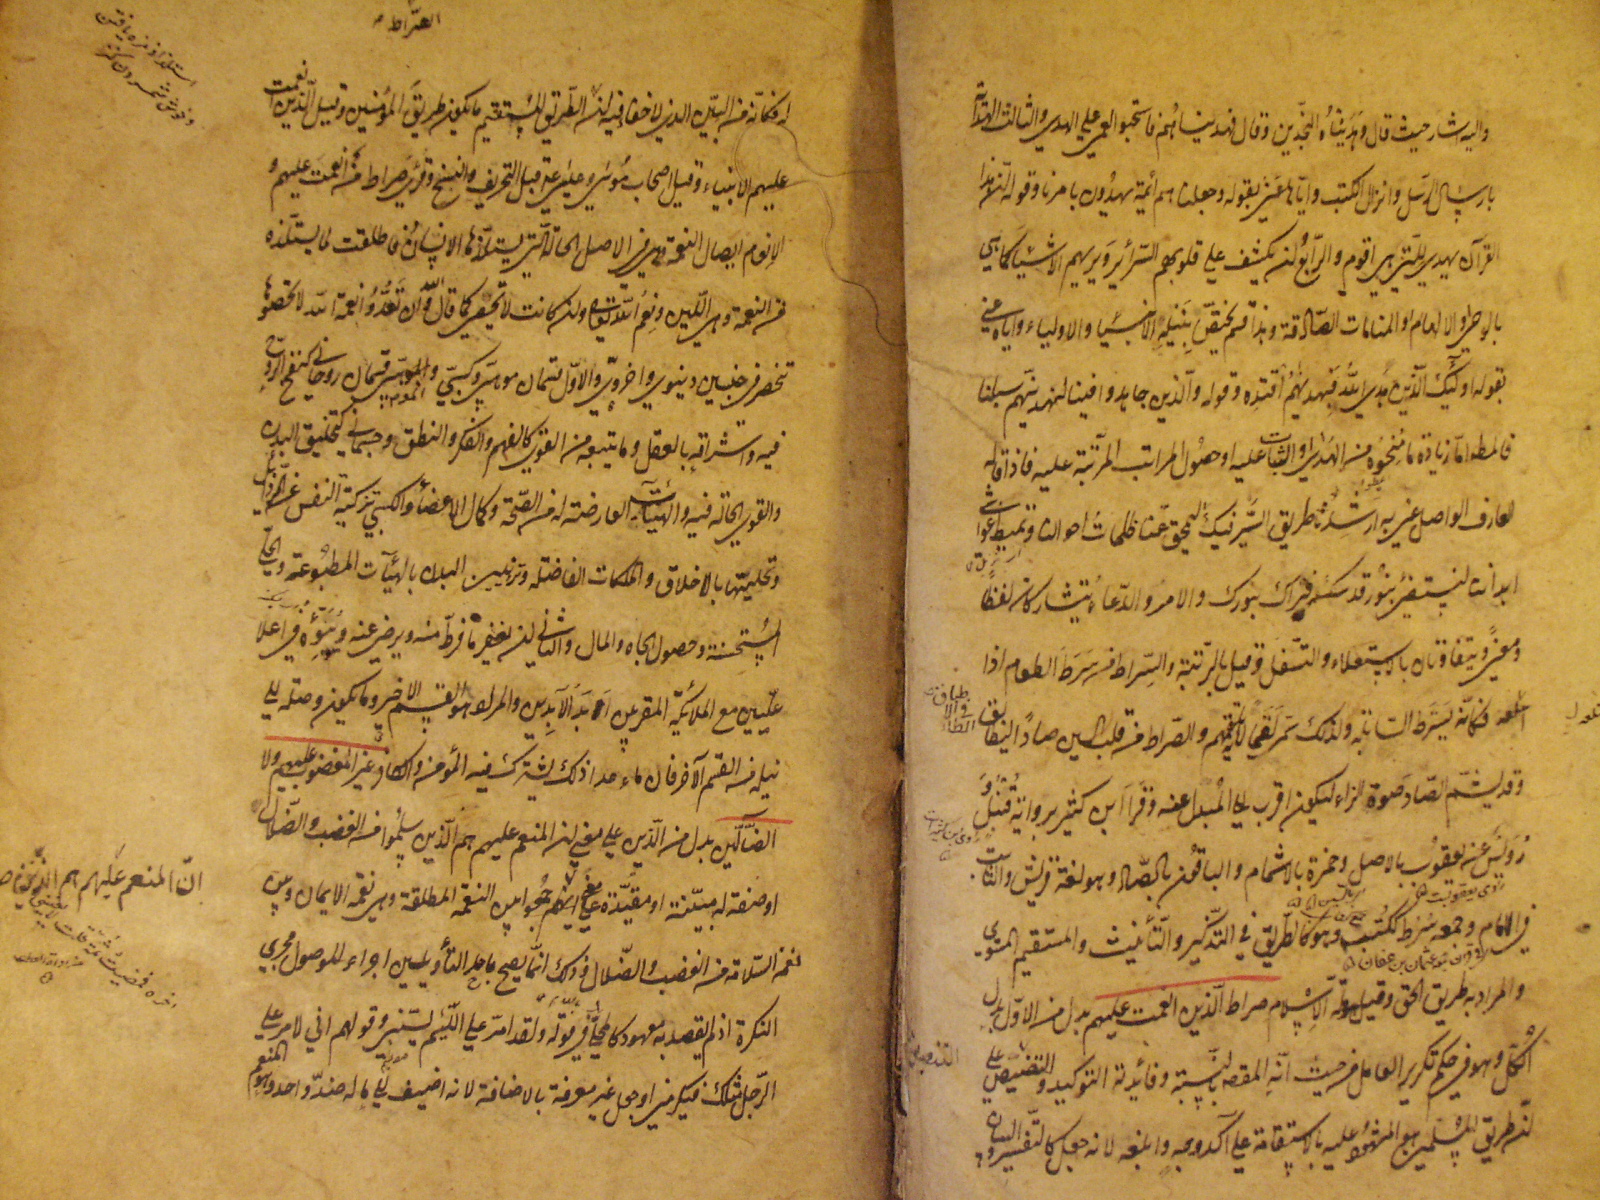 واليه اشار حيث قال وهديناه النجدين وقال فهديناهم فاستحبوا العمى على الهدى والثالث الهداية
بارسال الرسل وانزال الكتب واياها عنى بقوله وجعلناهم ائمة يهدون بامرنا وقوله ان هذا
القرآن يهدي للتي هي اقوم والرابع ان يكشف على قلوبهم السرائر ويريهم الاشياء كما هي
بالوحي او الالهام او المنامات الصادقة وهذا قسم يختص بنيله الانبياء والاولياء واياه عنى
بقوله اولئك الذين هدى الله فبهديهم اقتده وقوله والذين جاهدوا فينا لنهدينهم سبلنا
فالمطلوب اما زيادة ما منحوه من الهدى والثبات عليه او حصول المراتب المرتبة عليه فاذا قاله
العارف الواصل عنى به ارشدنا طريق السير فيك لتمحو عنا ظلمات احوالنا وتميط غواشي
ابداننا لنستضيء بنور قدسك فنراك بنورك والامر والدعاء يتشاركان لفظا
ومعنى ويتفاوتان بالاستعلاء والتسفل وقيل بالرتبة والسراط من سرط الطعام اذا
ابتلعه فكانه يسرط السابلة ولذلك سمي لقما لانه يلتقمهم والصراط من قلب السين صادا ليطابق
وقد يشم الصاد صوت الزاء ليكون اقرب الى المبدل عنه وقرأ ابن كثير برواية قنبل و
رويس عن يعقوب بالاصل وحمزة بالاشمام والباقون بالصاد وهو لغة قريش والثابت
في الامام وجمعه سرط ككتب وهو كالطريق في التذكير والتأنيث والمستقيم المستوي
والمراد به طريق الحق وقيل ملة الاسلام صراط الذين انعمت عليهم بدل من الاول بدل
الكل وهو في حكم تكرير العامل من حيث انه المقصود بالنسبة وفائدته التوكيد والتنصيص على
ان طريق المسلمين هو المشهود عليه بالاستقامة على آكد وجه وابلغه لانه جعل كالتفسير والبيان
الصراط
له فكانه من البين الذي لا خفاء فيه ان الطريق المستقيم ما يكون طريق المؤمنين وقيل الذين انعمت
عليهم الانبياء وقيل اصحاب موسى وعيسى قبل التحريف والنسخ وقرئ صراط من انعمت عليهم و
الانعام ايصال النعمة وهي في الاصل الحالة التي يستلذها الانسان فاطلقت لما يستلذه
من النعمة وهي اللين ونعم الله تعالى وان كانت لا تحصى كما قال وان تعدوا نعمة الله لا تحصوها
تنحصر في جنسين دنيوي واخروي والاول قسمان موهبي وكسبي والموهبي قسمان روحاني كنفخ الروح
فيه واشراقه بالعقل وما يتبعه من القوى كالفهم والفكر والنطق وجسماني كتخليق البدن
والقوى الحالة فيه والهيئات العارضة له من الصحة وكمال الاعضاء والكسبي تزكية النفس عن الرذائل
وتحليتها بالاخلاق والملكات الفاضلة وتزيين البدن بالهيئات المطبوعة والحلى
المستحسنة وحصول الجاه والمال والثاني ان يغفر ما فرط منه ويرضى عنه ويبوئه في اعلا
عليين مع الملائكة المقربين ابد الآبدين والمراد هو القسم الاخير وما يكون وصلة الى
نيله من القسم الآخر فان ما عدا ذلك يشترك فيه المؤمن والكافر غير المغضوب عليهم ولا
الضالين بدل من الذين على معنى ان المنعم عليهم هم الذين سلموا من الغضب والضلال
او صفة له مبينة او مقيدة على معنى انهم جمعوا بين النعمة المطلقة وهي نعمة الايمان وبين
نعمة السلامة من الغضب والضلال وذلك انما يصح باحد التأويلين اجراء للموصول مجرى
النكرة اذ لم يقصد به معهود كالمحلى في قوله ولقد امر على اللئيم يسبني وقولهم اني لامر على
الرجل مثلك فيكرمني او جعل غير معرفة بالاضافة لانه اضيف الى ما له ضد واحد وهو المنعم
ان المنعم عليهم هم الذين